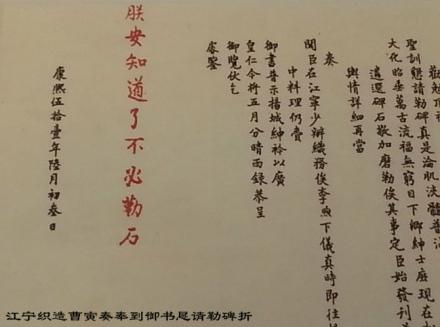 勸勉頂祝
聖訓懇請勒碑真是淪肌浹髓普沾
大化昭垂萬古流福無窮日下鄉紳士庶現在
遴選碑石敬加磨勒俟其事定臣始發刊
輿情詳細再當
奏
聞臣在江寧少辦織務俟李煦下儀真時即往
中料理仍賫
御書普示揚城紳衿以廣
皇仁今將五月分晴雨錄恭呈
御覽伏乞
睿鑒
朕安知道了不必勒石
康熙伍拾壹年陸月初叁日
江宁织造曹寅奏奉到御书恳请勒碑折